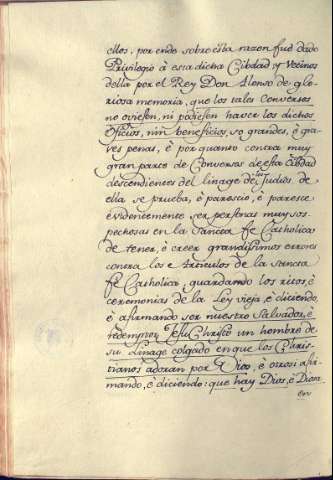 ellos, por ende sobre esta razon fue dado
Privilegio à esta dicha Cibdad, y Vecinos
della por el Rey Don Alonso de glo-
riosa memoria, que los tales conversos
no oviesen, ni podiesen haver los dichos
oficios, nin beneficios, so grandes, è gra-
ves penas, è por quanto contra muy
gran parte de Conversos de esta Cibdad
descendientes del linage de los Judios de
ella se prueba, è parescio, è paresce
evidentemente ser personas muy sos-
pechosas en la Sancta fe Catholica
de tener, è creer grandisimos errores
contra los Articulos de la Sancta
fe Catholica, guardando los ritos, è
ceremonias de la Ley vieja, è diciendo,
è afirmando ser nuestro Salvador, è
redemptor Jesu Christo un hombre de
su linage colgado en que los Chris-
tianos adoran por Dios, è otrosi afir-
mando, è diciendo: que hay Dios, è Diosa
en